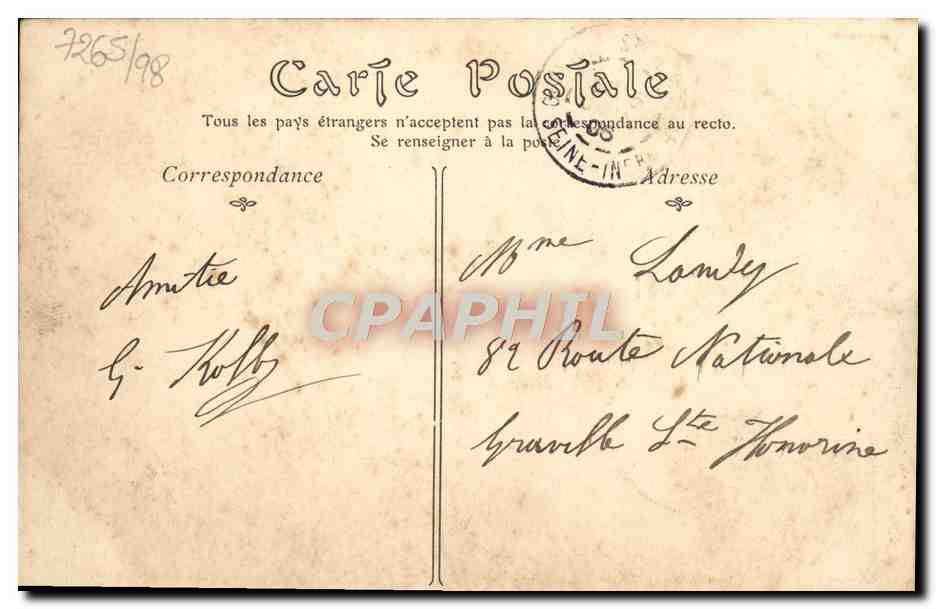 7265/98
Carte Postale
Tous les pays étrangers n'acceptent pas la correspondance au recto.
Se renseigner à la poste
Correspondance
Adresse
06
SEINE-INFRE
CPAPHIL
Amitie
G. Kolb
Mme Landy
82 Route Nationale
Graville Ste Honorine